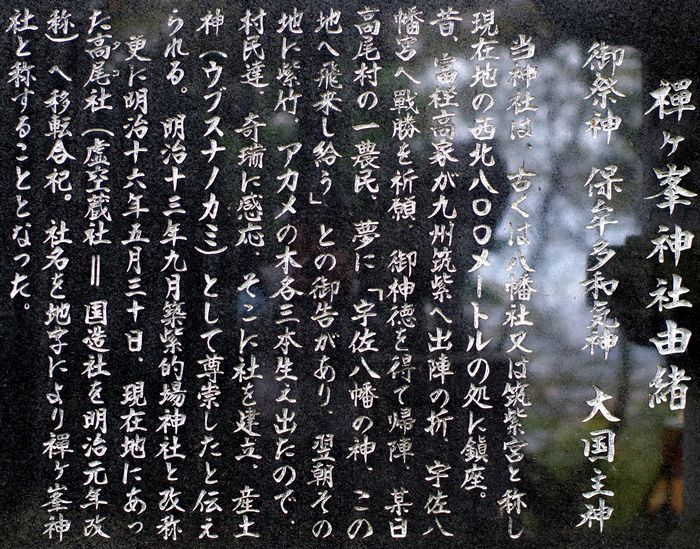 禪ヶ峯神社由緒
御祭神 保牟多和気神 大国主神
当神社は、古くは八幡社又は筑紫宮と称し
現在地の西北八〇〇メートルの処に鎮座。
昔、富樫高家が九州筑紫へ出陣の折、宇佐八
幡宮へ戰勝を祈願、御神徳を得て帰陣、某日
高尾村の一農民、夢に「宇佐八幡の神、この
地へ飛来し給う」との御告があり、翌朝その
地に紫竹、アカメの木各三本生え出たので、
村民達 奇瑞に感応、そこに社を建立、産土
神(ウブスナノカミ)として尊崇したと伝え
られる。明治十三年九月築紫的場神社と改称
更に明治十六年五月三十日、現在地にあっ
た高尾社(虚空蔵社=国造社を明治元年改
称)へ移転合祀。社名を地字により禪ヶ峯神
社と称することとなった。